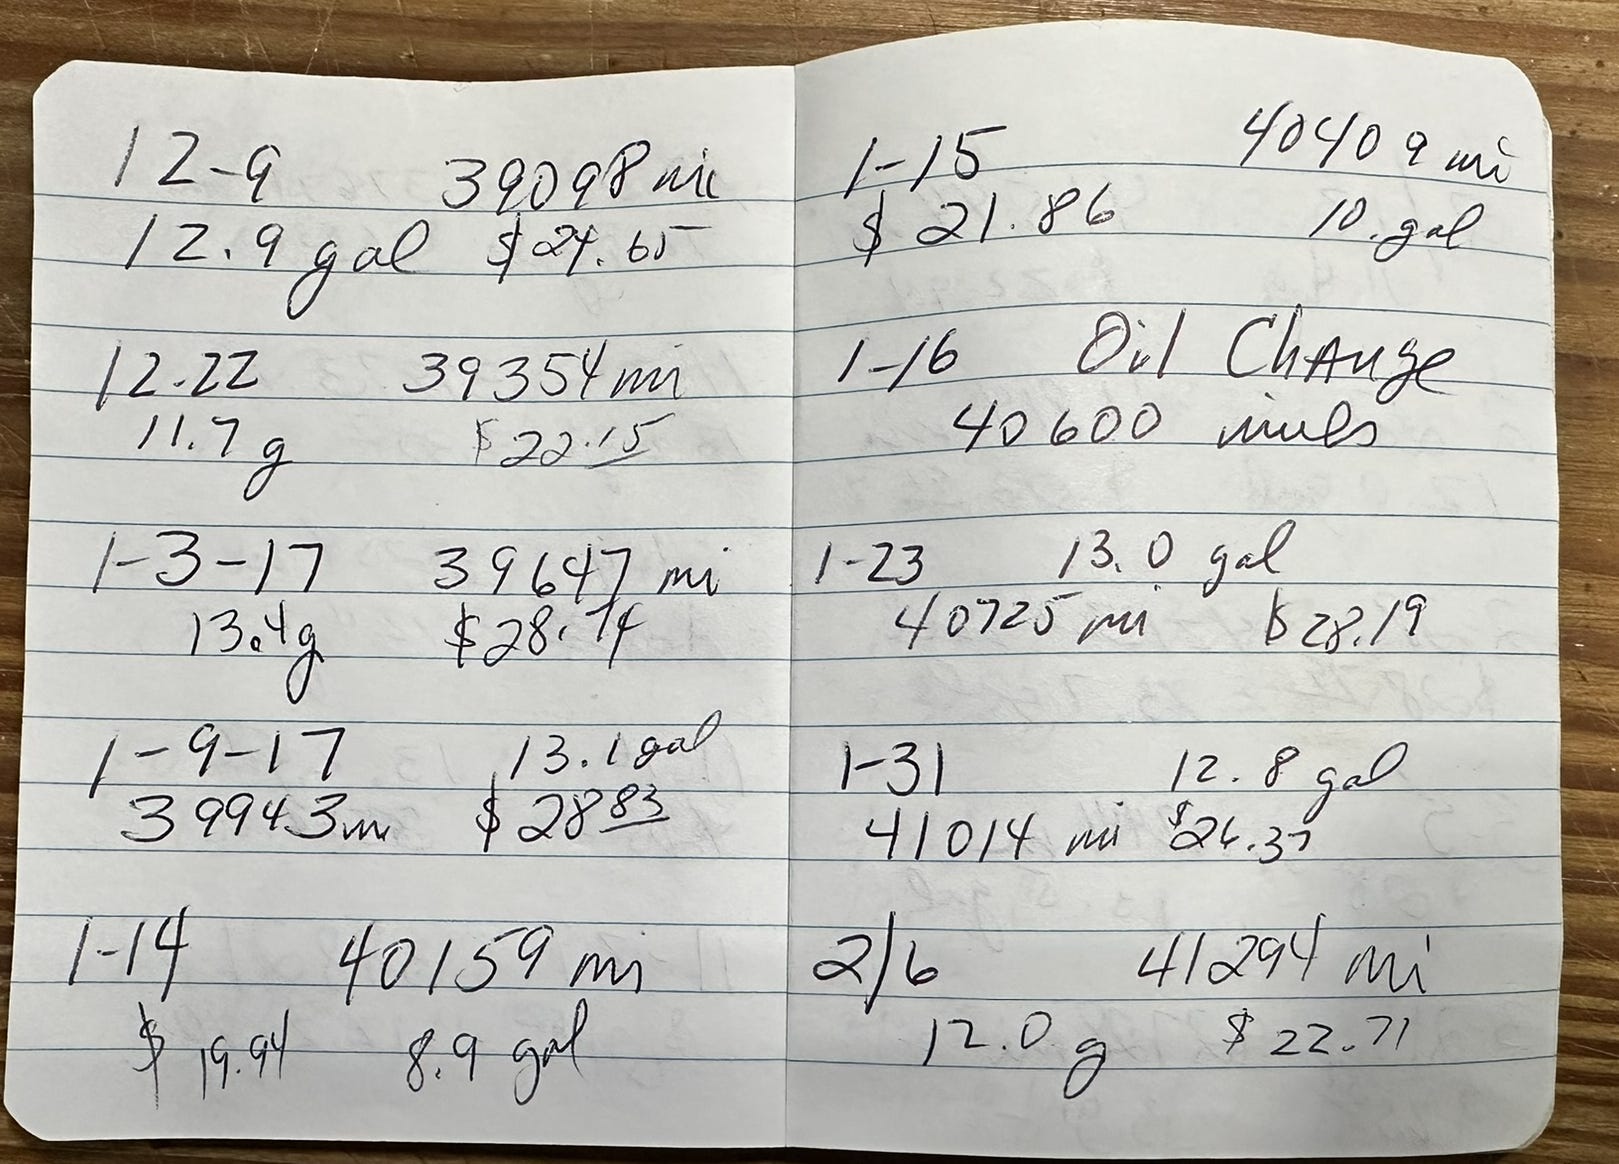 12-9 39098 mi
12.9 gal $24.65
12-22 39354 mi
11.7 g $22.15
1-3-17 39647 mi
13.4 g $28.74
1-9-17 13.1 gal
39943 mi $28 83
1-14 40159 mi
$19.94 8.9 gal
1-15 40409 mi
$21.86 10. gal
1-16 Oil Change
40600 miles
1-23 13.0 gal
40725 mi $28.19
1-31 12.8 gal
41014 mi $26.37
2/6 41294 mi
12.0 g $22.71